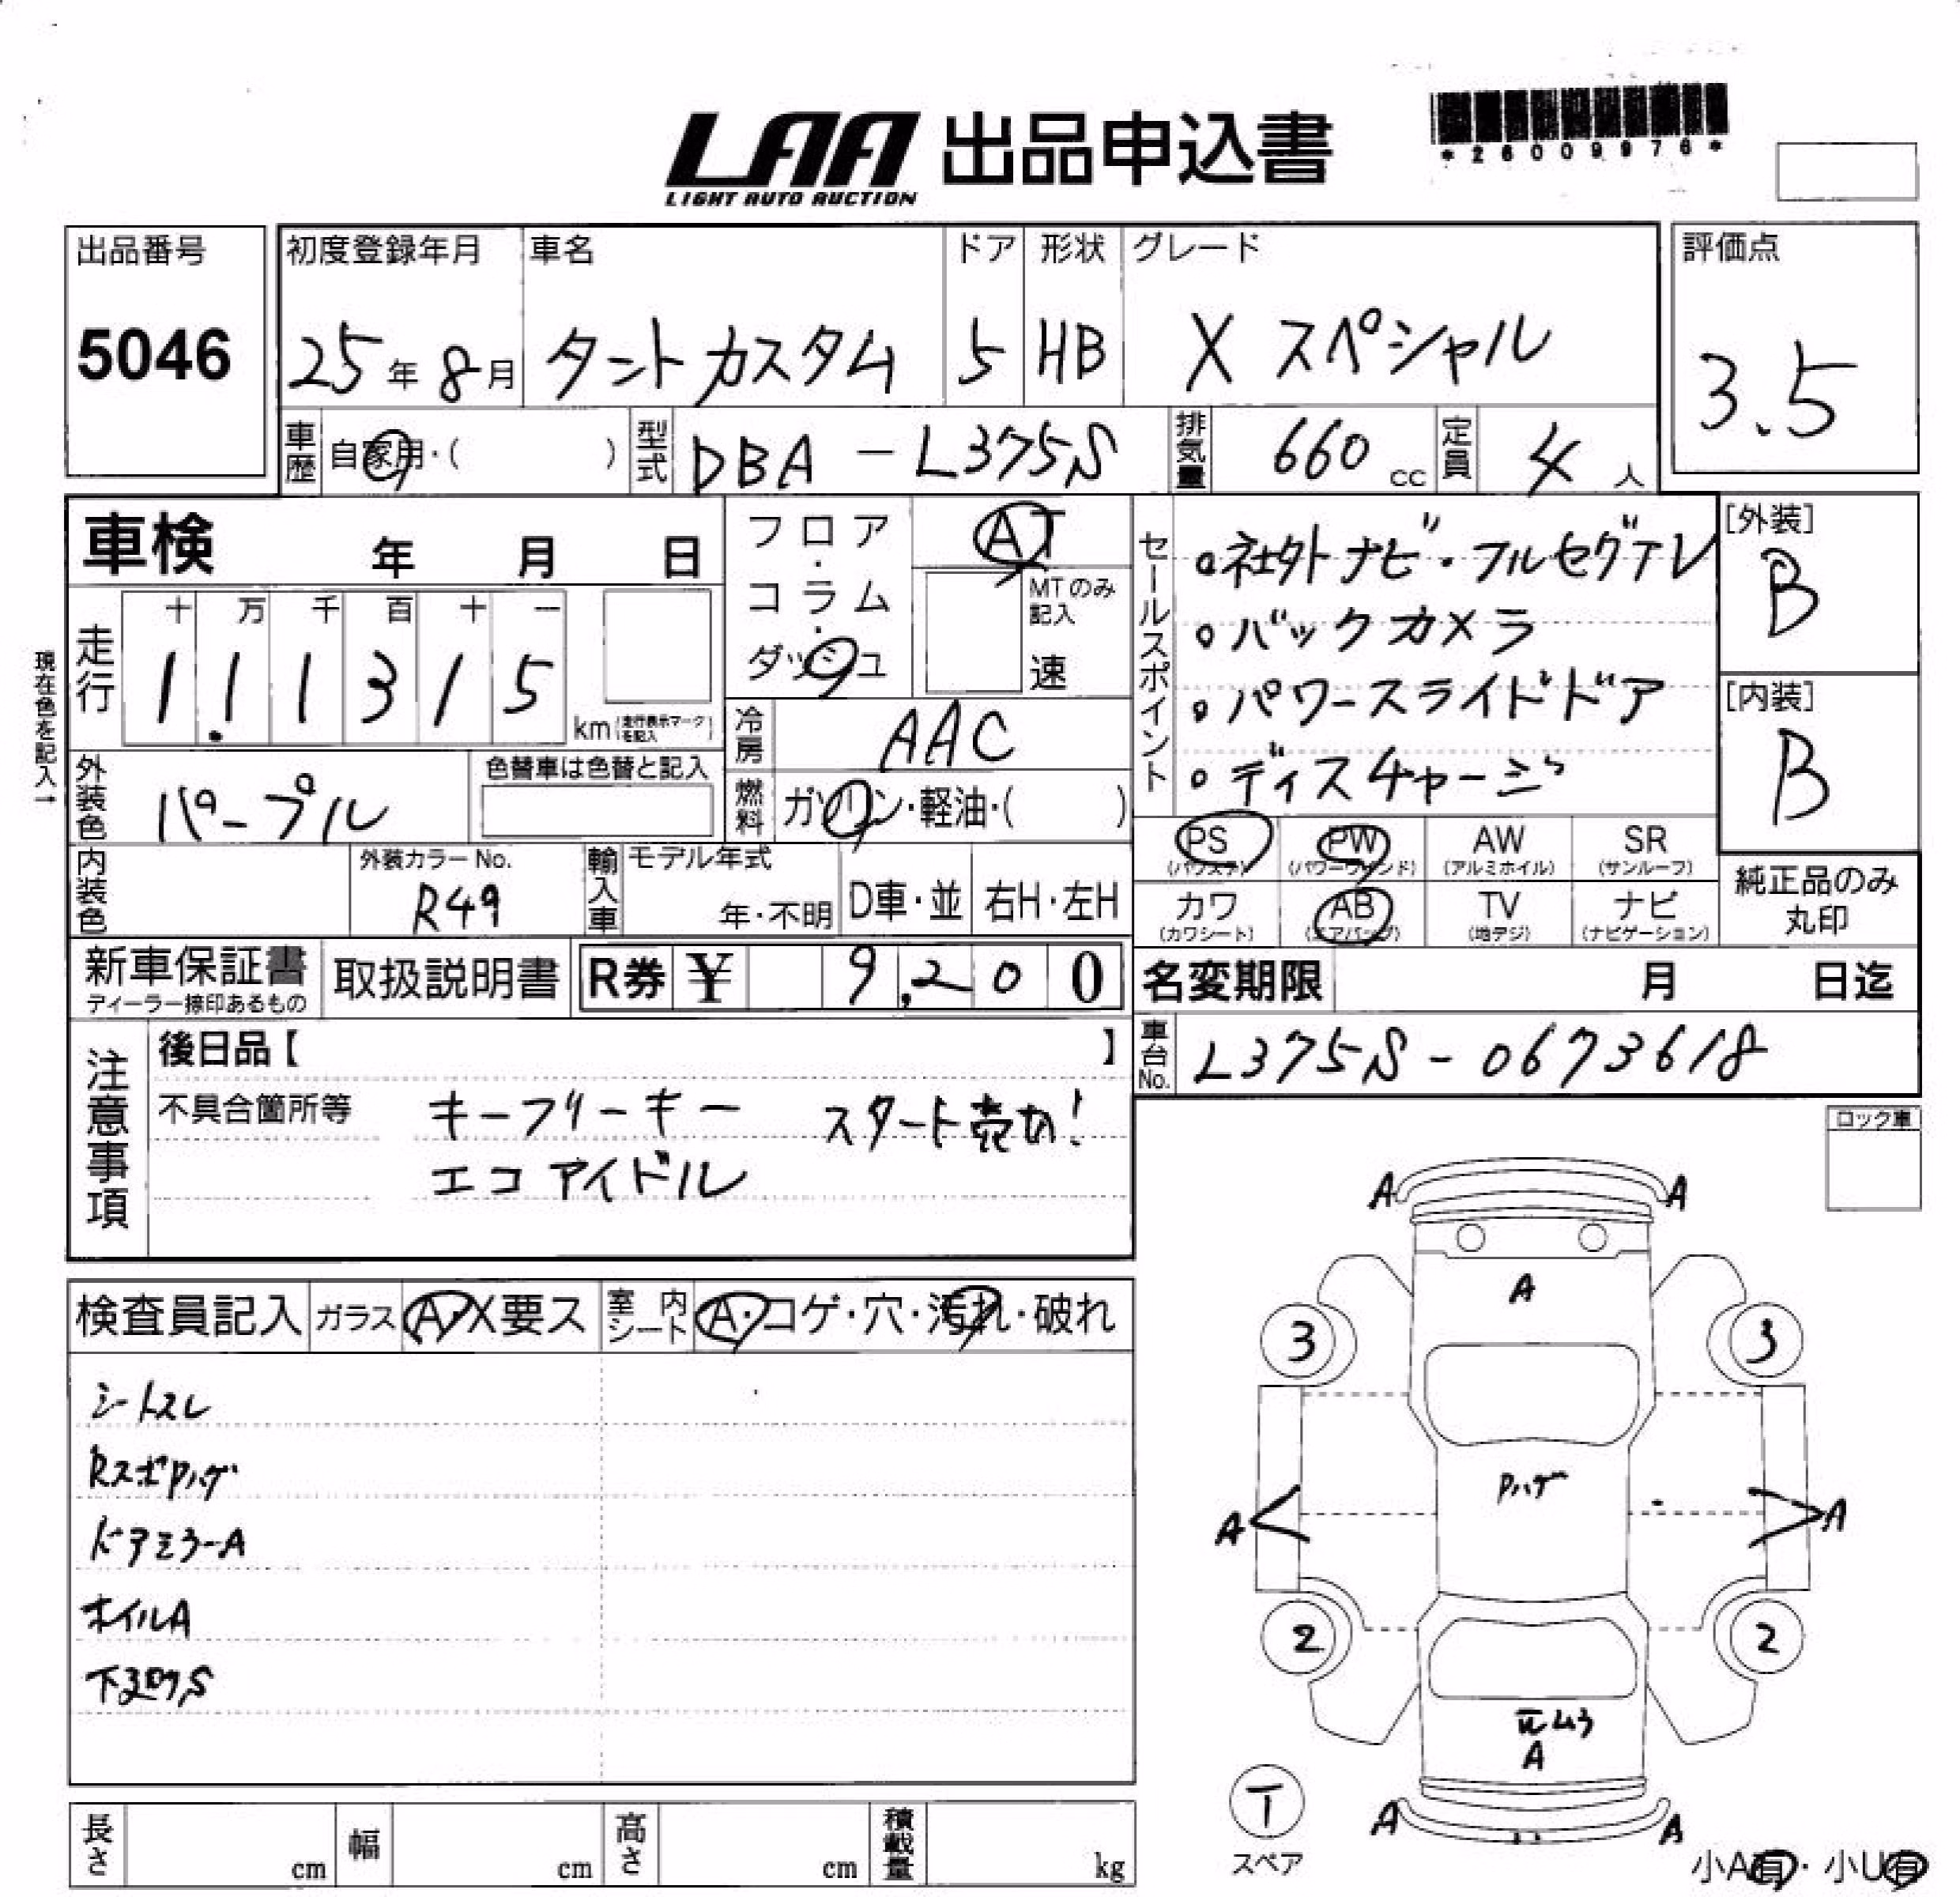 LAA 出品申込書
LIGHT AUTO AUCTION
*26009976*
出品番号
5046
初度登録年月
25年8月
車名
タントカスタム
ドア
5
形状
HB
グレード
X スペシャル
評価点
3.5
車歴 自家用・( )
型式 DBA-L375S
排気量 660 cc
定員 4人
車検 年 月 日
現在色を記入→
走行
十 万 千 百 十 一
111315
km (走行表示マークを記入)
フロア・コラム・ダッシュ
AT
MTのみ記入
速
冷房 AAC
燃料 ガソリン・軽油・( )
外装色 パープル
色替車は色替と記入
内装色
外装カラーNo.
R49
輸入車
モデル年式
年・不明
D車・並
右H・左H
セールスポイント
・社外ナビ・フルセグTV
・バックカメラ
・パワースライドドア
・ディスチャージ
PS (パワステ)
PW (パワーウインド)
AW (アルミホイル)
SR (サンルーフ)
カワ (カワシート)
AB (エアバッグ)
TV (地デジ)
ナビ (ナビゲーション)
[外装]
B
[内装]
B
純正品のみ
丸印
新車保証書
ディーラー捺印あるもの
取扱説明書
R券 ¥ 9,200
名変期限 月 日迄
車台No. L375S-0673618
注意事項
後日品【 】
不具合箇所等
キーフリーキー スタート売切!
エコアイドル
ロック車
検査員記入
ガラス A・X要ス
室内シート A・コゲ・穴・汚れ・破れ
シートスレ
RスポPハゲ
ドアミラーA
ホイルA
下廻りS
A A
A
3 3
Pハゲ
A A
2 2
A
A A
T
スペア
小A有・小U有
長さ cm
幅 cm
高さ cm
積載量 kg